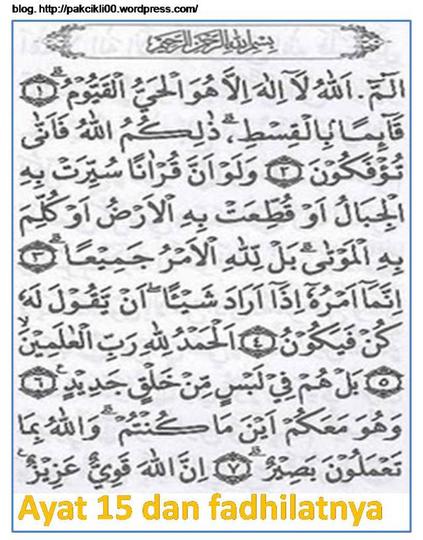 blog. http://pakcikli00.wordpress.com/
بِسْمِ اللهِ الرَّحْمٰنِ الرَّحِيْمِ
الٓمّٓ. اَللّٰهُ لَآ اِلٰهَ اِلَّا هُوَ الْحَيُّ الْقَيُّوْمُ ۗ ﴿١﴾
قَآئِمًا بِالْقِسْطِ ۗ، ذٰلِكُمُ اللّٰهُ فَاَنّٰى
تُؤْفَكُوْنَ ﴿٢﴾ وَلَوْ اَنَّ قُرْاٰنًا سُيِّرَتْ بِهِ
الْجِبَالُ اَوْ قُطِّعَتْ بِهِ الْاَرْضُ اَوْ كُلِّمَ
بِهِ الْمَوْتٰى ۗ بَلْ لِلّٰهِ الْاَمْرُ جَمِيْعًا ۗ ﴿٣﴾
اِنَّمَآ اَمْرُهٗٓ اِذَآ اَرَادَ شَيْئًا ۙ اَنْ يَقُوْلَ لَهٗ
كُنْ فَيَكُوْنُ ﴿٤﴾ اَلْحَمْدُ لِلّٰهِ رَبِّ الْعٰلَمِيْنَ ۙ
﴿٥﴾ بَلْ هُمْ فِيْ لَبْسٍ مِّنْ خَلْقٍ جَدِيْدٍ ۚ ﴿٦﴾
وَهُوَ مَعَكُمْ اَيْنَ مَا كُنْتُمْ ۗ وَاللّٰهُ بِمَا
تَعْمَلُوْنَ بَصِيْرٌ ۗ ﴿٧﴾ اِنَّ اللّٰهَ قَوِيٌّ عَزِيْزٌ ۚ
Ayat 15 dan fadhilatnya